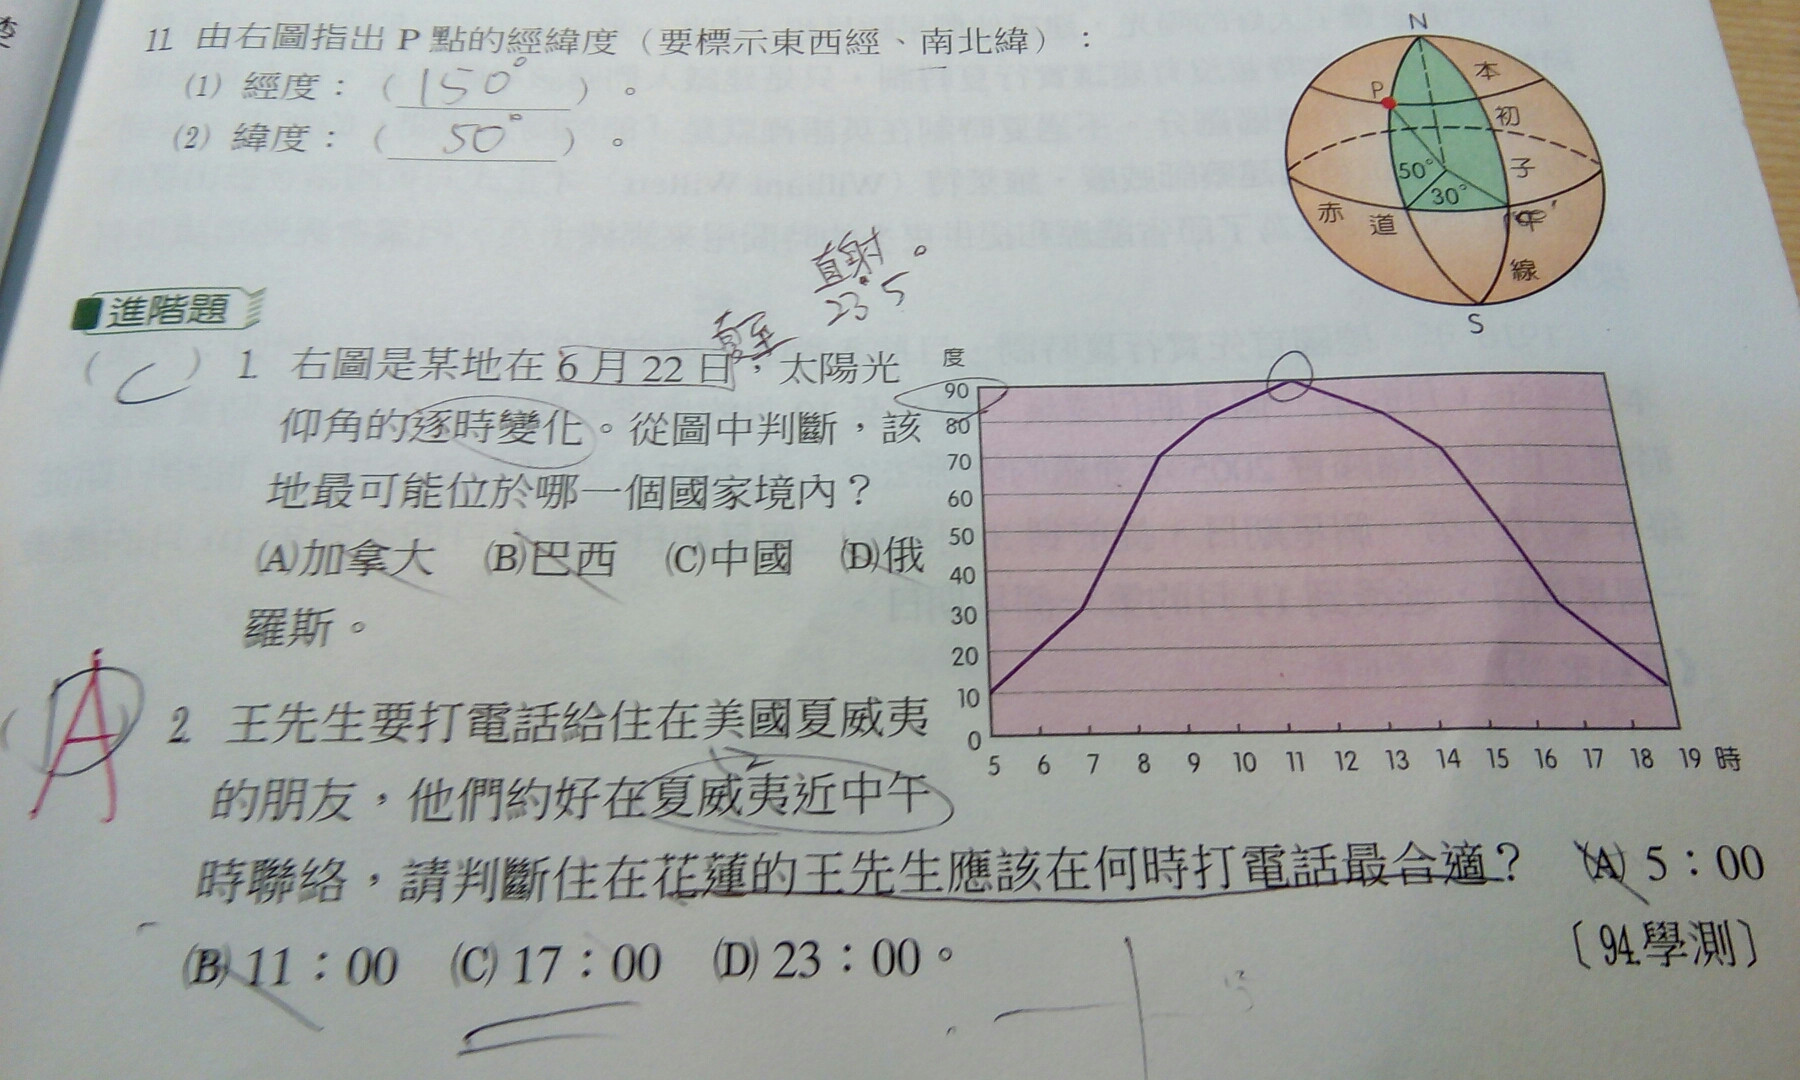 11 由右圖指出 P 點的經緯度（要標示東西經、南北緯）：
(1) 經度：（ 150° ）。
(2) 緯度：（ 50° ）。
N
P
本
初
子
午
線
50°
30°
赤道
S
直射。
23.5
夏至
進階題
( C ) 1. 右圖是某地在 6 月 22 日，太陽光
仰角的逐時變化。從圖中判斷，該
地最可能位於哪一個國家境內？
(A)加拿大 (B)巴西 (C)中國 (D)俄
羅斯。
度
90
80
70
60
50
40
30
20
10
0
5 6 7 8 9 10 11 12 13 14 15 16 17 18 19 時
( A ) 2. 王先生要打電話給住在美國夏威夷
的朋友，他們約好在夏威夷近中午
時聯絡，請判斷住在花蓮的王先生應該在何時打電話最合適？ (A) 5：00
(B) 11：00 (C) 17：00 (D) 23：00。 〔94.學測〕